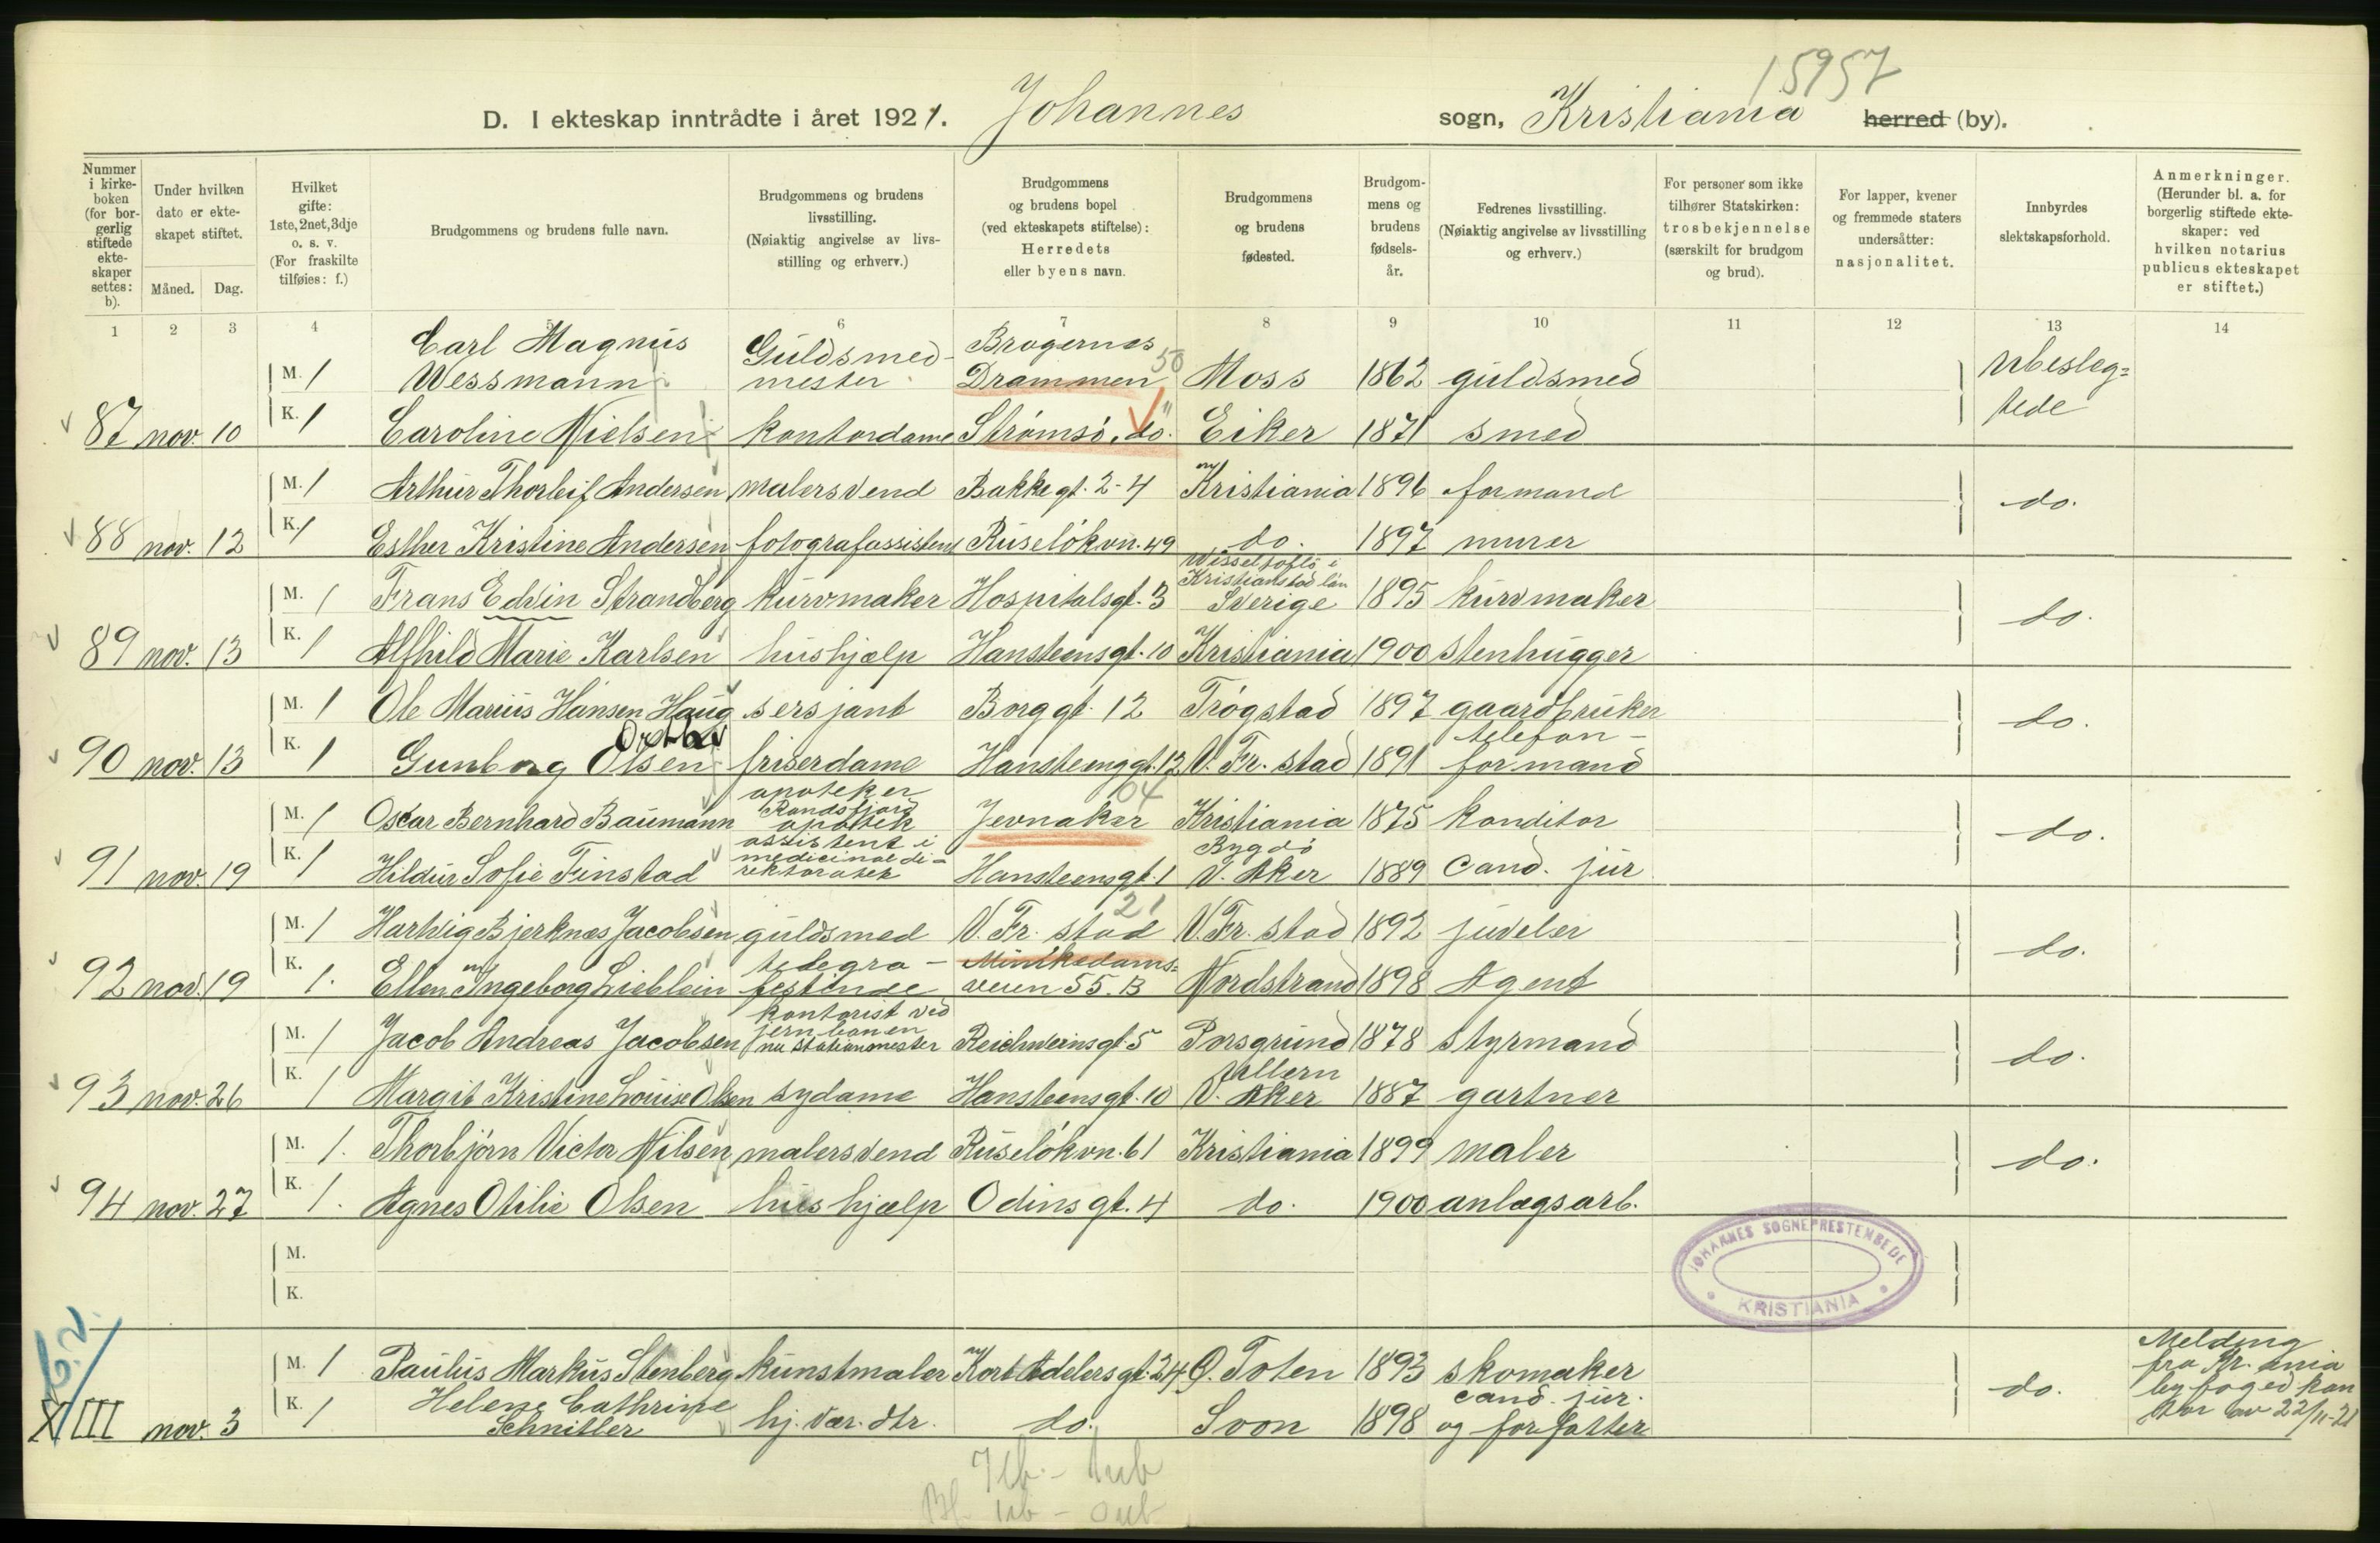 15957
D. I ekteskap inntrådte i året 1921. Johannes sogn, Kristiania herred (by).
Nummer i kirke-boken (for bor-gerlig stiftede ekte-skaper settes: b).
Under hvilken dato er ekte-skapet stiftet.
Måned. Dag.
Hvilket gifte: 1ste, 2net, 3dje o. s. v. (For fraskilte tilføies: f.)
Brudgommens og brudens fulle navn.
Brudgommens og brudens livsstilling. (Nøiaktig angivelse av livs-stilling og erhverv.)
Brudgommens og brudens bopel (ved ekteskapets stiftelse): Herredets eller byens navn.
Brudgommens og brudens fødested.
Brudgom-mens og brudens fødsels-år.
Fedrenes livsstilling. (Nøiaktig angivelse av livsstilling og erhverv.)
For personer som ikke tilhører Statskirken: trosbekjennelse (særskilt for brudgom og brud).
For lapper, kvener og fremmede staters undersåtter: nasjonalitet.
Innbyrdes slektskapsforhold.
Anmerkninger. (Herunder bl. a. for borgerlig stiftede ekte-skaper: ved hvilken notarius publicus ekteskapet er stiftet.)
1 2 3 4 5 6 7 8 9 10 11 12 13 14
M. 1 Carl Magnus Wessmann Guldsmed-mester Bragernes Drammen 50 Moss 1862 guldsmed Ubesleg=tede
87 nov. 10 K. 1 Caroline Nielsen kontordame Strømsø, do. Eiker 1871 smed
M. 1 Arthur Thorleif Andersen malersvend Bakkegt. 2-4 Kristiania 1896 formand do.
88 nov. 12 K. 1 Esther Kristine Andersen fotografassistent Ruseløkvn. 49 do. 1897 murer
M. 1 Frans Edvin Strandberg kurvmaker Hospitalsgt. 3 Kristianstad län Sverige 1895 kurvmaker do.
89 nov. 13 K. 1 Alfhild Marie Karlsen hushjælp Hansteensgt. 10 Kristiania 1900 stenhugger
M. 1 Ole Marius Hansen Haug sersjant Borggt. 12 Trøgstad 1897 gaardbruker do.
90 nov. 13 K. 1 Gunborg Olsen friserdame Hansteensgt. 12 V. Fr. stad 1891 telefon-formand
M. 1 Oscar Bernhard Baumann apoteker Randsfjord apotek Jevnaker 64 Kristiania 1875 konditor do.
91 nov. 19 K. 1 Hildur Sofie Finstad assistent i medicinaldi-rektoratet Hansteensgt. 1 Bygdø V. Aker 1889 Cand. jur
M. 1 Hartvig Bjerknæs Jacobsen guldsmed V. Fr. stad 21 V. Fr. stad 1892 juveler do.
92 nov. 19 K. 1. Ellen Ingeborg Lieblein telegra-festinde Munkedams=veien 55. B Nordstrand 1898 Agent
M. 1 Jacob Andreas Jacobsen kontorist ved jernbanen nu stationsmester Reichweinsgt. 5 Porsgrund 1878 styrmand do.
93 nov. 26 K. 1 Margit Kristine Louise Olsen sydame Hansteensgt. 10 Ullern V. Aker 1887 gartner
M. 1. Thorbjørn Victor Nilsen malersvend Ruseløkvn. 61 Kristiania 1899 maler do.
94 nov. 27 K. 1. Agnes Otilie Olsen hushjælp Odinsgt. 4 do. 1900 anlægsarb.
M.
K.
JOHANNES SOGNEPRESTEMBEDE KRISTIANIA
M. 1 Paulus Markus Stenberg kunstmaler Kort Adelersgt. 24 Ø. Toten 1893 skomaker do. Melding fra Kr.ania byfogedkontor av 22/11-21
XIII nov. 3 K. 1 Helene Cathrine Schnitler hj. vær. dtr. do. Svon 1898 cand. jur. og forfatter